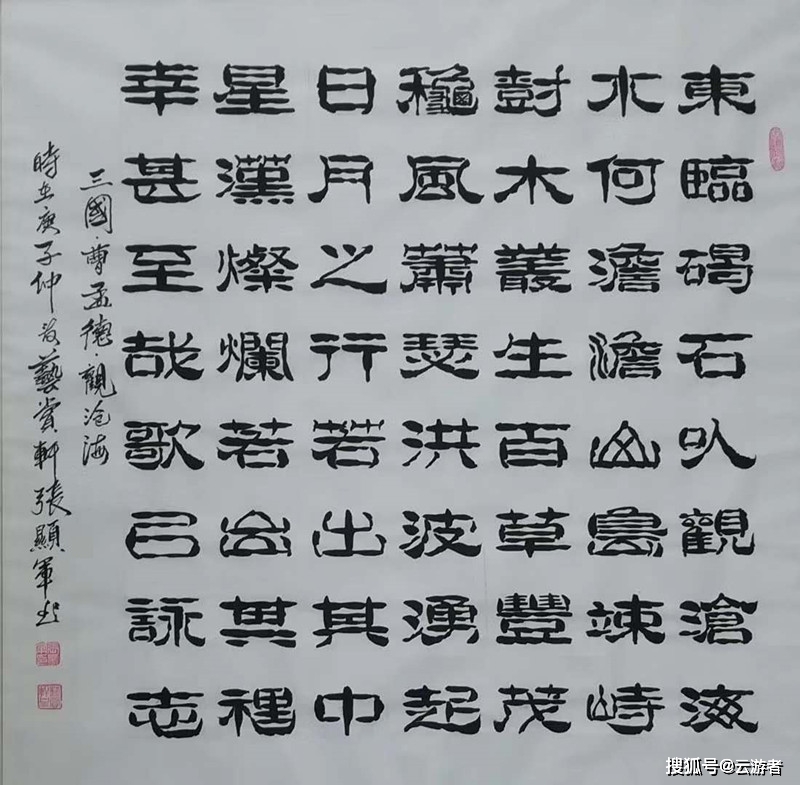 東臨碣石以觀滄海
水何澹澹山島竦峙
尌木叢生百草豐茂
龝風蕭瑟洪波湧起
日月之行若出其中
星漢燦爛若出其裡
幸甚至哉歌已詠志
三國曹孟德·觀沧海
時在庚子仲春藝賞軒張顯軍书
搜狐号@云游者